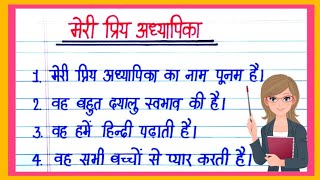 मेरी प्रिय अध्यापिका
1. मेरी प्रिय अध्यापिका का नाम पूनम है।
2. वह बहुत दयालु स्वभाव की है।
3. वह हमें हिन्दी पढ़ाती है।
4. वह सभी बच्चों से प्यार करती है।